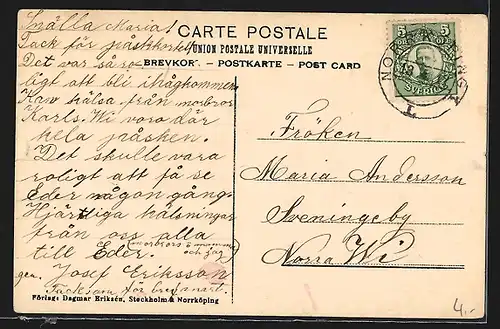 Snälla Maria!
Tack för påskkortet
Det var så ro-
ligt att bli ihågkommen
Kan hälsa från morbror
Karls. Wi voro där
hela påsken.
Det skulle vara
roligt att få se
Eder någon gång
Hjärtliga hälsningar
från oss alla
till Eder. (morbrors & mammas
och jag)
gen. Josef Eriksson
Tacksam för bref snart.
Förlag: Dagmar Eriksén, Stockholm & Norrköping
CARTE POSTALE
UNION POSTALE UNIVERSELLE
BREVKORT. - POSTKARTE - POST CARD
5 5
SVERIGE
Fröken
Maria Andersson
Sveningeby
Norra Wi
4.-